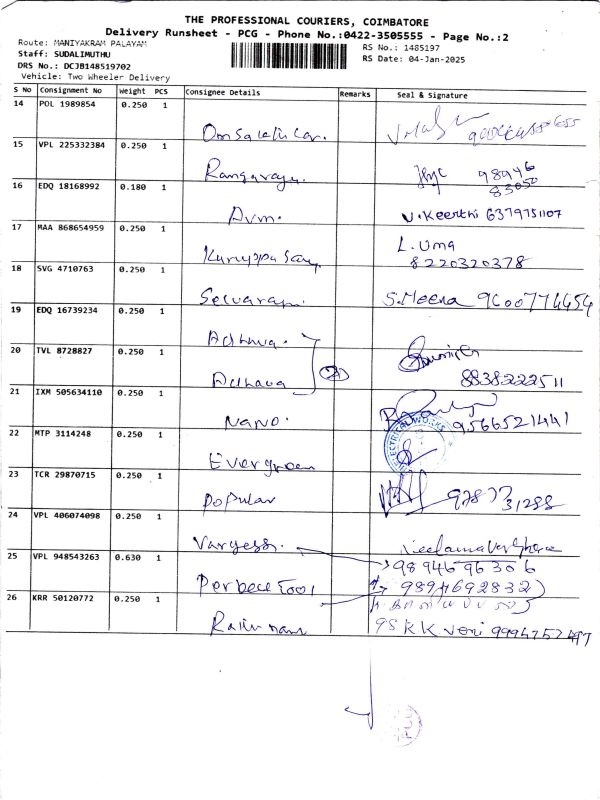 THE PROFESSIONAL COURIERS, COIMBATORE
Delivery Runsheet - PCG - Phone No.:0422-3505555 - Page No.:2
Route: MANIYAKRAM PALAYAM
RS No.: 1485197
Staff: SUDALIMUTHU
RS Date: 04-Jan-2025
DRS No.: DCJB148519702
Vehicle: Two Wheeler Delivery
S No Consignment No Weight PCS Consignee Details Remarks Seal & Signature
14 POL 1989854 0.250 1
15 VPL 225332384 0.250 1
Rangaraya
98946
83050
16 EDQ 18168992 0.180 1
Avm.
V.Keerthi 6379751107
17 MAA 868654959 0.250 1
L. Uma
Kuruppu Samy
8220320378
18 SVG 4710763 0.250 1
Selvaraj
S.Meena 9600774454
19 EDQ 16739234 0.250 1
Adhava.
20 TVL 8728827 0.250 1
Adhava
8838222511
21 IXM 505634110 0.250 1
Nano.
9566521441
ELECTRICAL WORKS
22 MTP 3114248 0.250 1
Evergreen
23 TCR 29870715 0.250 1
Popular
97877 31288
24 VPL 406074098 0.250 1
Vargess.
25 VPL 948543263 0.630 1
9894696306
Perbect Tool
9894692832
26 KRR 50120772 0.250 1
98 KK Veni